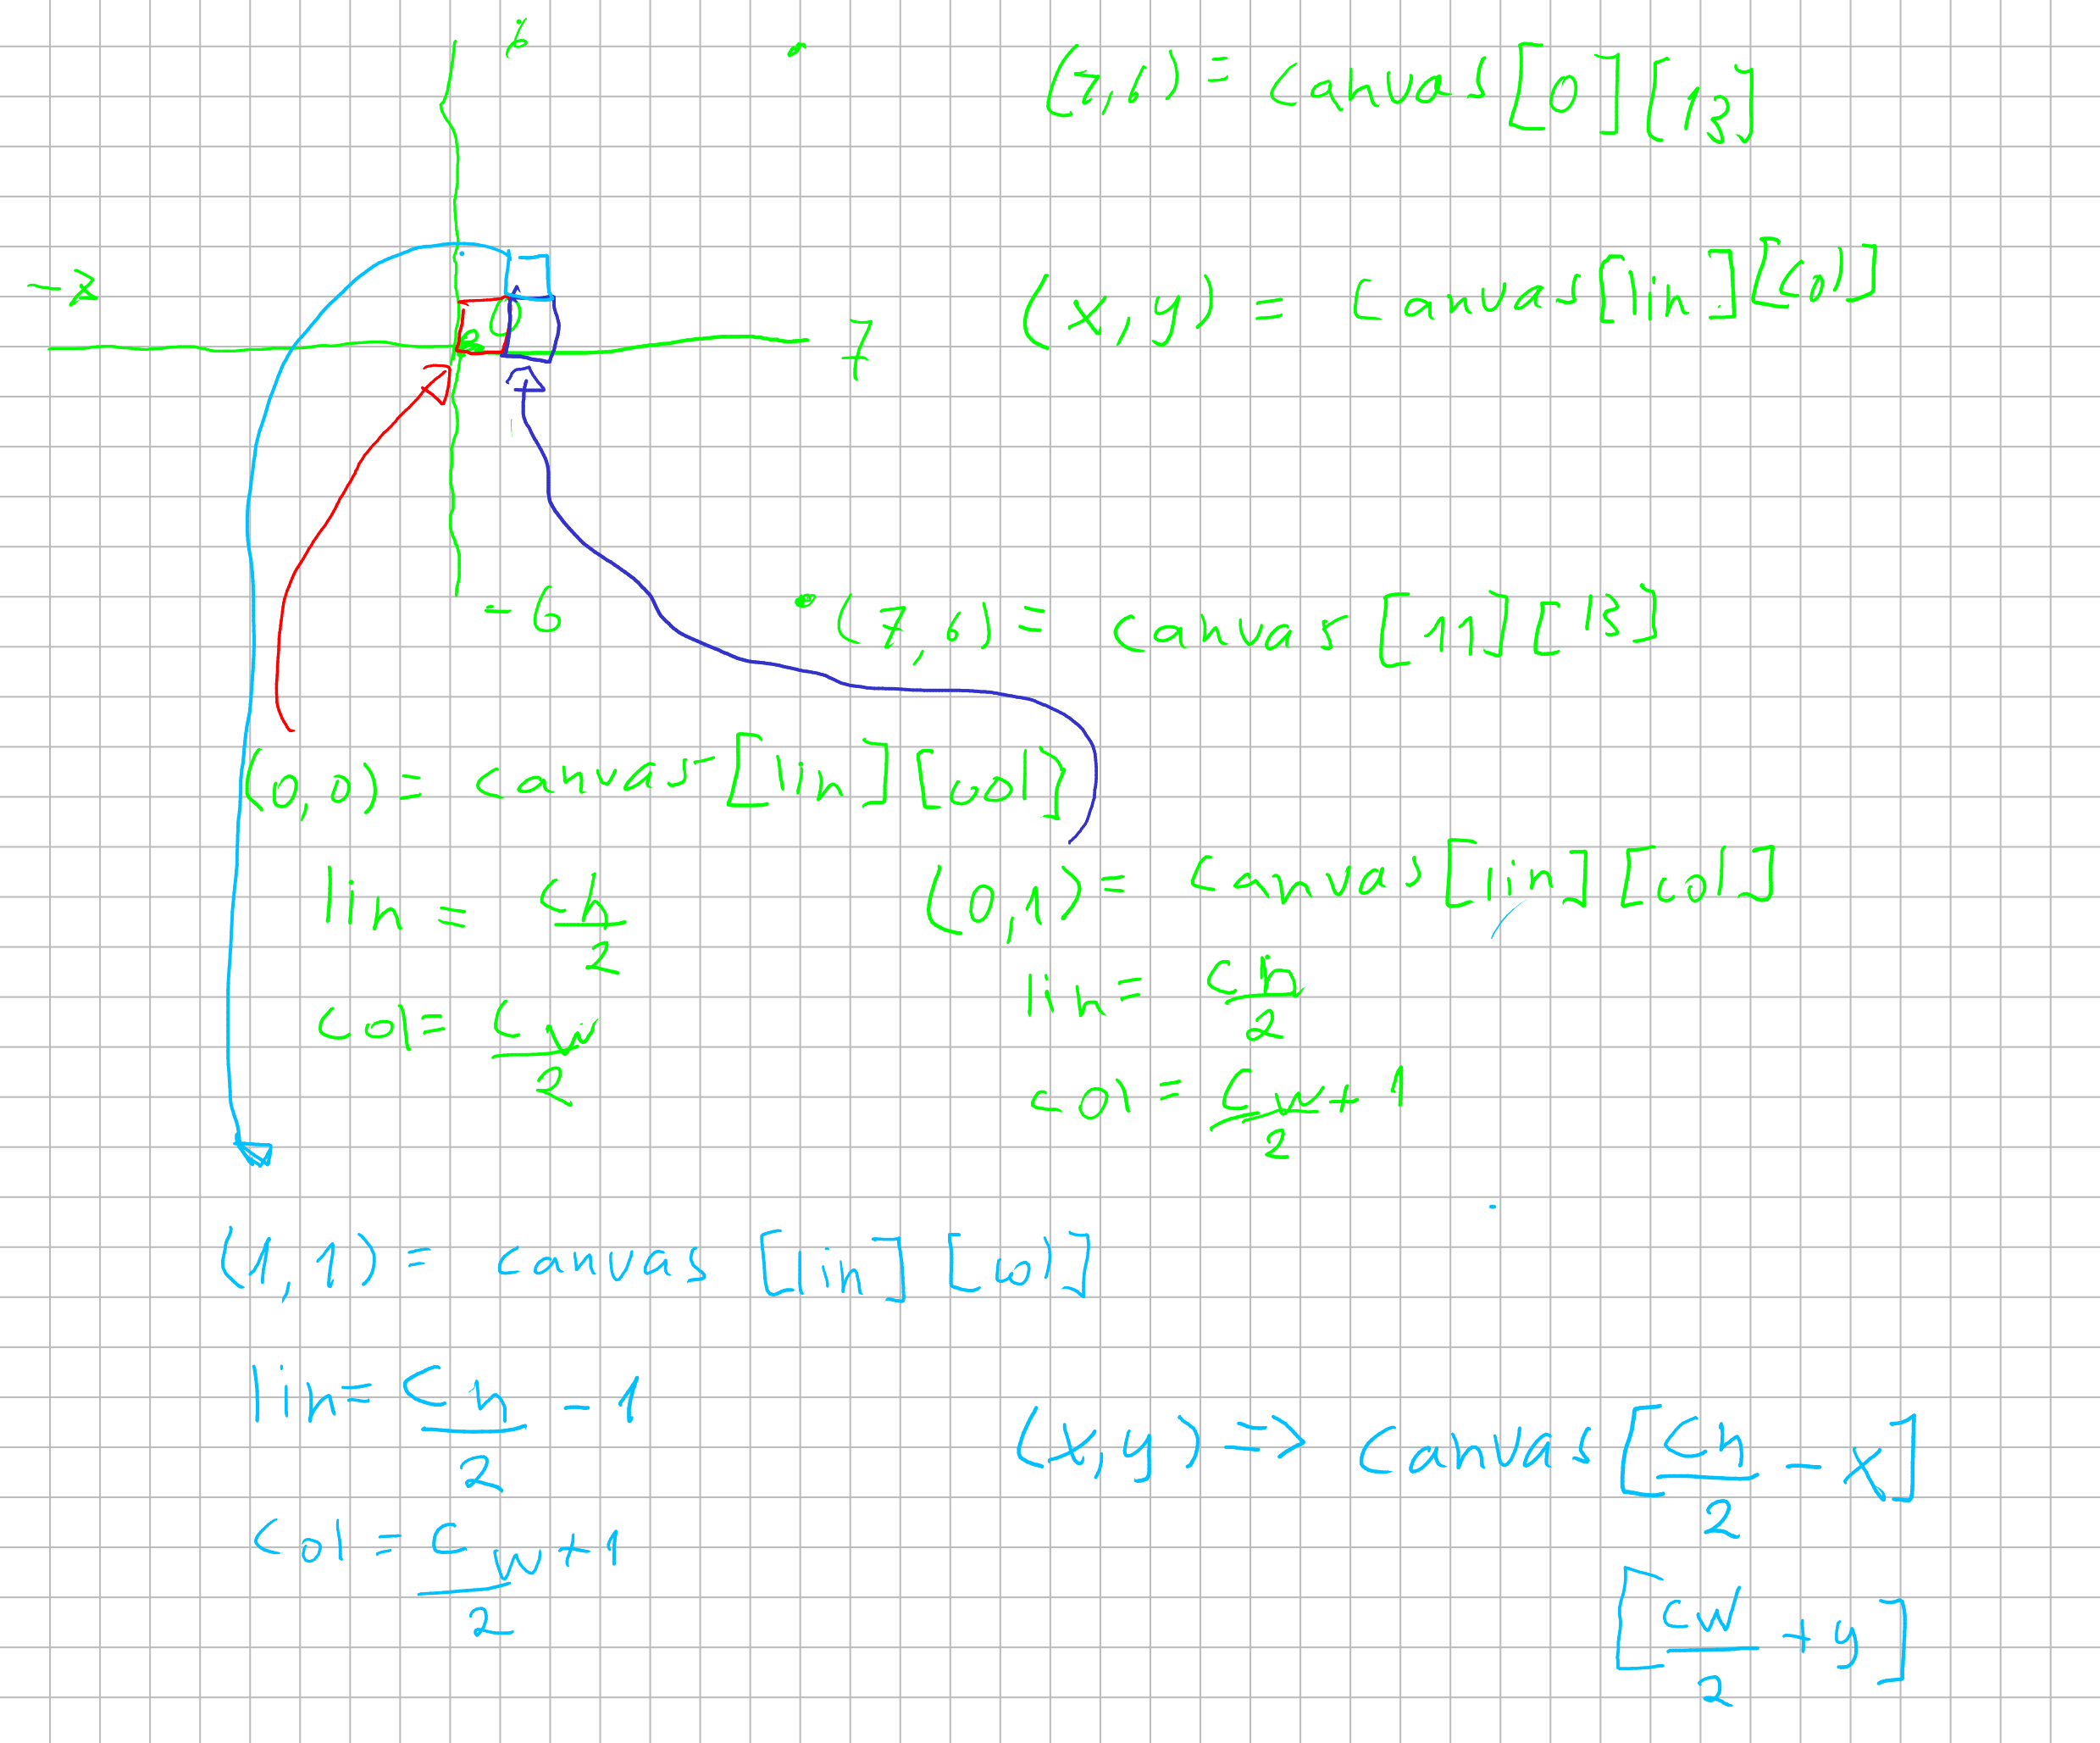 6
(7,6) = canvas[0][13]
-7
(x,y) = canvas[lin][col]
0
7
-6
(7,6) = canvas[11][13]
(0,0) = canvas[lin][col]
lin = ch/2
col = cw/2
(0,1) = canvas[lin][col]
lin = ch/2
col = cw/2 + 1
(1,1) = canvas[lin][col]
lin = ch/2 - 1
col = cw/2 + 1
(x,y) => canvas[ch/2 - x]
[cw/2 + y]